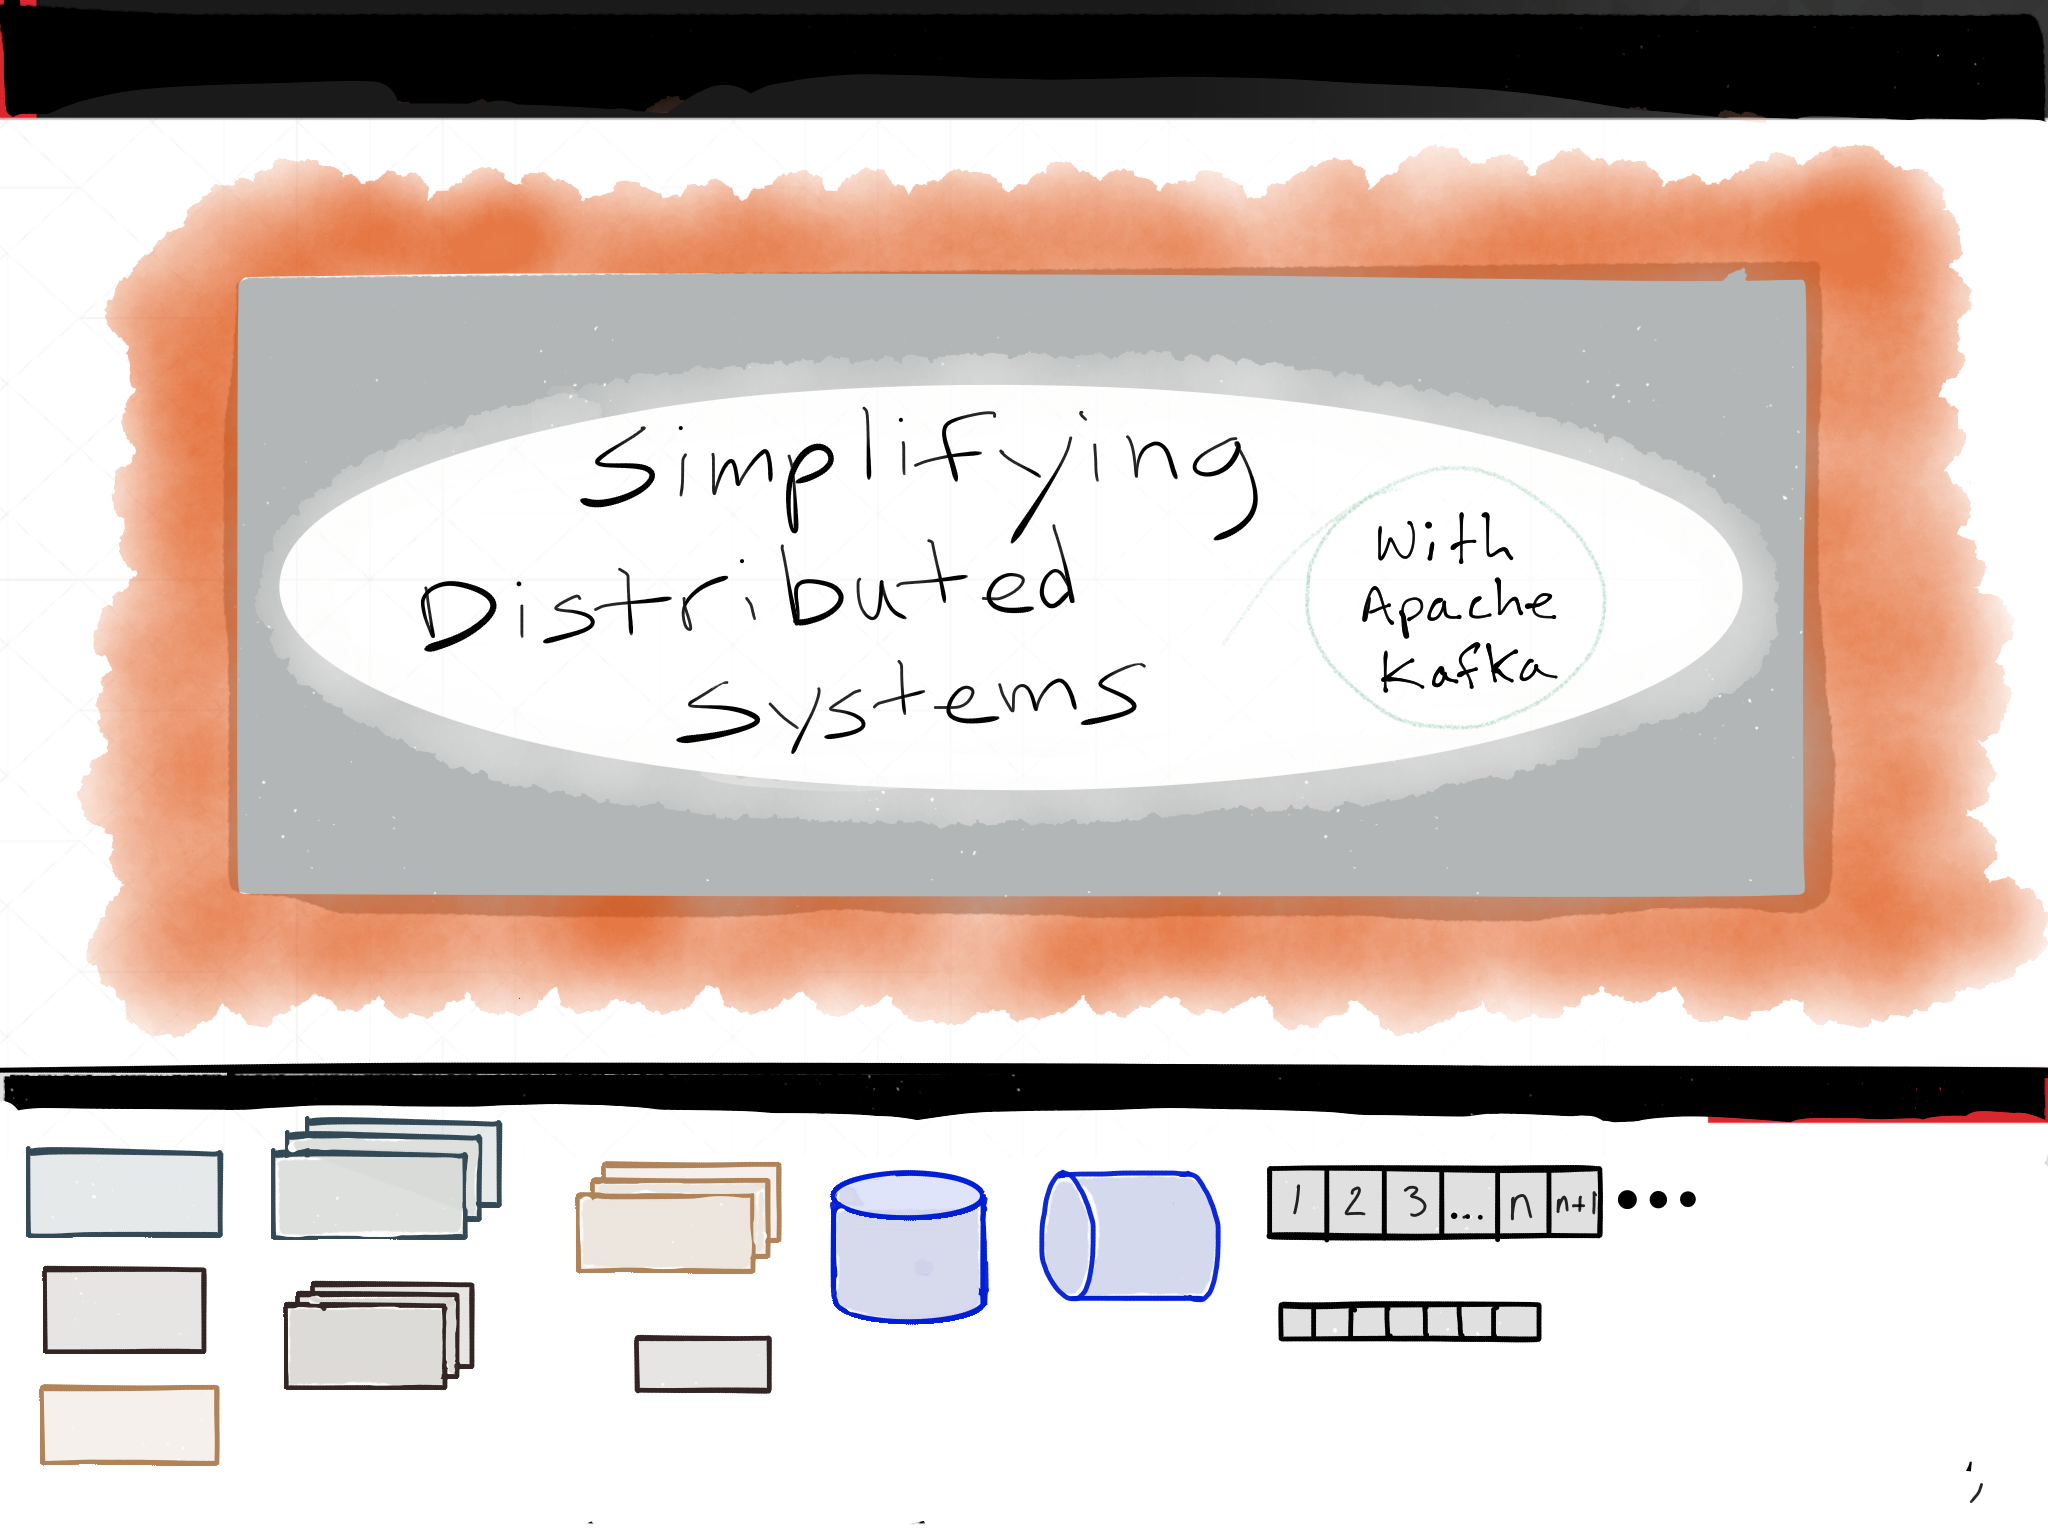 Simplifying
Distributed
Systems
With
Apache
Kafka
1 2 3 ... n n+1 ...